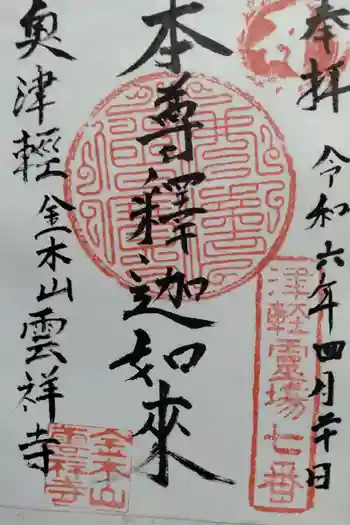 奉拝
令和六年四月二十日
津軽霊場七番
本尊釋迦如來
奥津輕金木山雲祥寺
金木山
雲祥寺